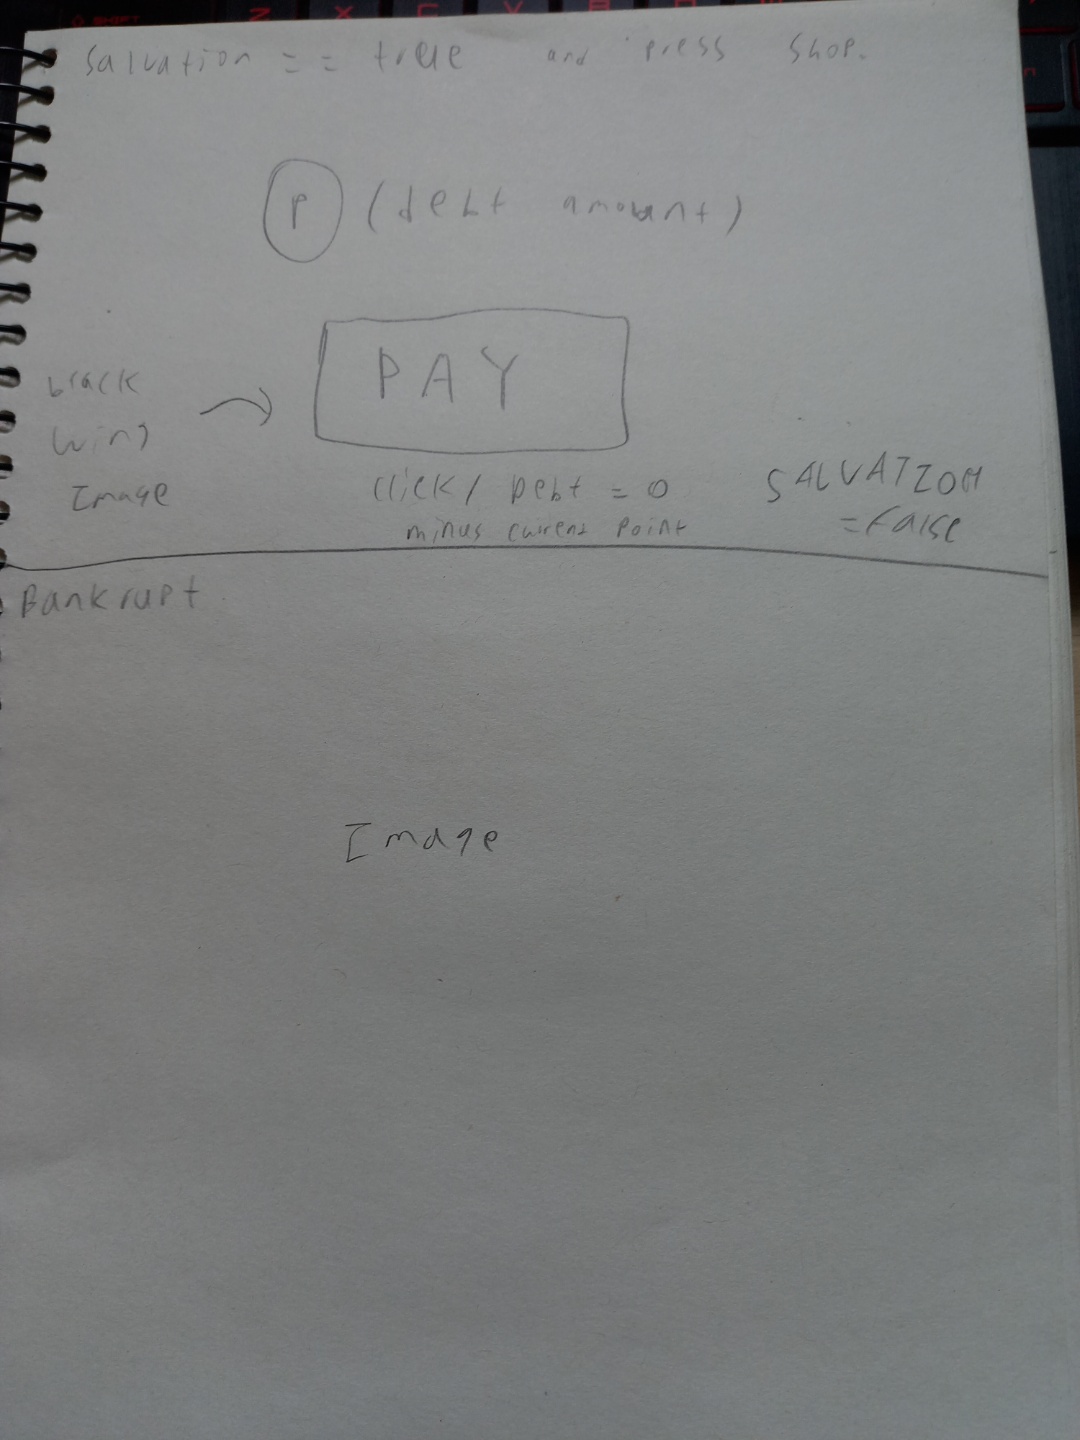 Salvation == true and press shop.
P (debt amount)
PAY
black
wing
Image
click / Debt = 0
minus current point
SALVATION
= False
Bankrupt
Image